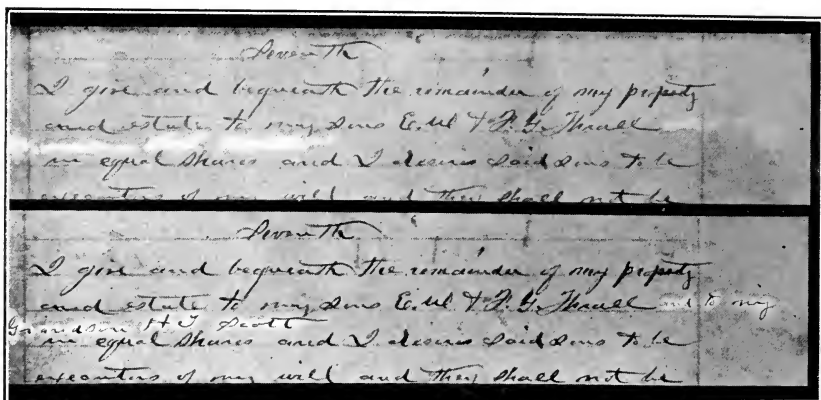 Seventh
I give and bequeath the remainder of my property
and estate to my sons E.W & F.G. Thrall
in equal shares and I desire said sons to be
executors of my will and they shall not be
Seventh
I give and bequeath the remainder of my property
and estate to my sons E.W & F.G. Thrall and to my
Grandson H J Scott
in equal shares and I desire said sons to be
executors of my will and they shall not be